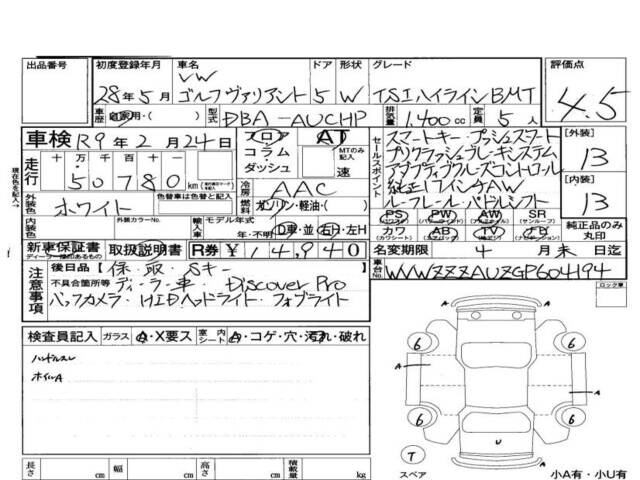 出品番号
初度登録年月 28年5月
車名 VW ゴルフヴァリアント
ドア 5
形状 W
グレード TSIハイラインBMT
評価点 4.5
車歴 自家用・( )
型式 DBA-AUCHP
排気量 1,400cc
定員 5人
車検 R9年2月24日
フロア コラム・ダッシュ AT
MTのみ記入 速
走行 十 万 千 百 十 一
50780 km
冷房 AAC
外装色 ホワイト
色替車は色替色名
燃料 ガソリン・軽油・( )
内装色
外装カラーNo.
輸入車 モデル年式 年・不明 D車・並 右H・左H
セールスポイント
スマートキー・プッシュスタート
プリクラッシュブレーキシステム
アダプティブクルーズコントロール
純正17インチAW
ルーフレール・パドルシフト
[外装] 13
[内装] 13
PS PW AW SR
カワ AB TV
純正品のみ丸印
新車保証書 取扱説明書 R券 ¥14,940
ディーラー発行のあるもの
名変期限 4月末日迄
注意事項
後日品 [保 取 Sキー
不具合箇所等 ディーラー車・Discover Pro
バックカメラ・HIDヘッドライト・フォグライト
車台No. WVWZZZAUZGP604194
ロック車
現在色を記入→
検査員記入 ガラス A・X要ス 室内シート A・コゲ・穴・汚れ・破れ
ハンドルスレ
ホイルA
6 6
A A
6 6
A
U
T
スペア
小A有・小U有
長さ cm 幅 cm 高さ cm 積載量 kg